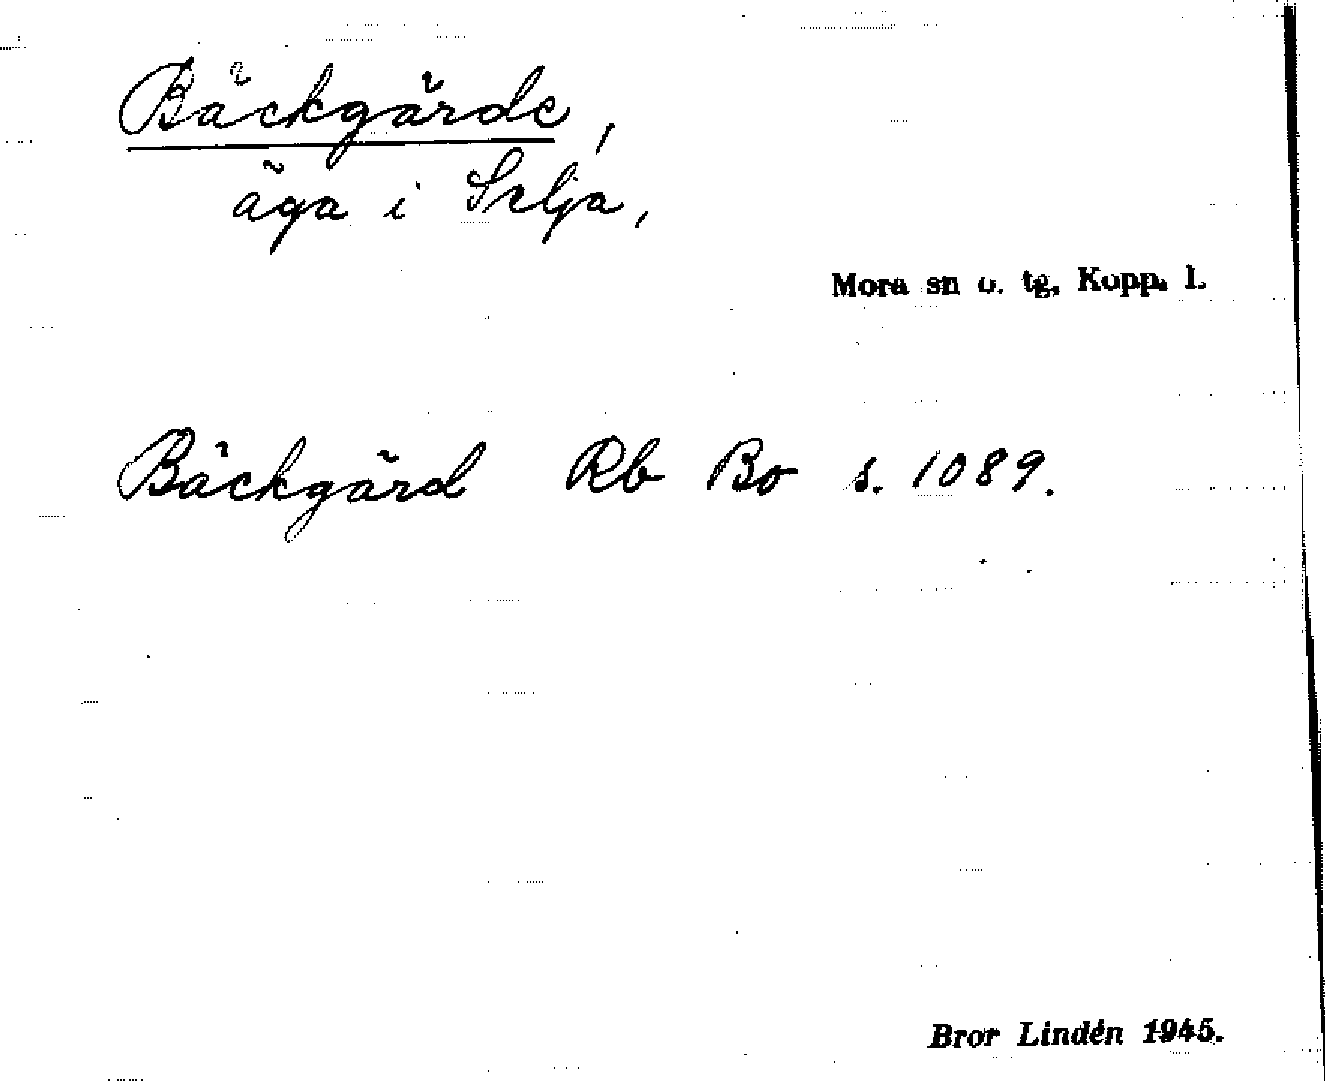 Bäckgärde,
äga i Selja,
Mora sn o. tg, Kopp. l.
Bäckgärd Rb Bo s. 1089.
Bror Lindén 1945.